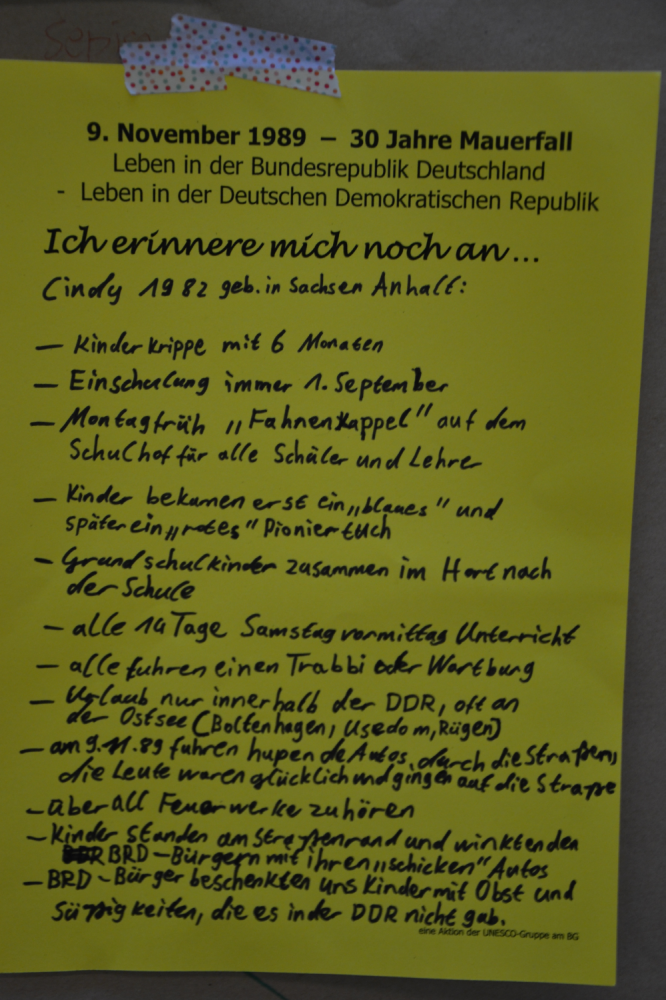 9. November 1989 – 30 Jahre Mauerfall
Leben in der Bundesrepublik Deutschland
- Leben in der Deutschen Demokratischen Republik
Ich erinnere mich noch an...
Cindy 1982 geb. in Sachsen Anhalt:
– Kinderkrippe mit 6 Monaten
– Einschulung immer 1. September
– Montagfrüh „Fahnenkappel" auf dem
Schulhof für alle Schüler und Lehrer
– Kinder bekamen erst ein „blaues" und
später ein „rotes" Pioniertuch
– Grundschulkinder zusammen im Hort nach
der Schule
– alle 14 Tage Samstagvormittag Unterricht
– alle fuhren einen Trabbi oder Wartburg
– Urlaub nur innerhalb der DDR, oft an
der Ostsee (Boltenhagen, Usedom, Rügen)
– am 9.11.89 fuhren hupende Autos durch die Straßen,
die Leute waren glücklich und gingen auf die Straße
– überall Feuerwerke zu hören
– Kinder standen am Straßenrand und winkten den
BRD-Bürgern mit ihren „schicken" Autos
– BRD-Bürger beschenkten uns Kinder mit Obst und
Süßigkeiten, die es in der DDR nicht gab.
eine Aktion der UNESCO-Gruppe am BG